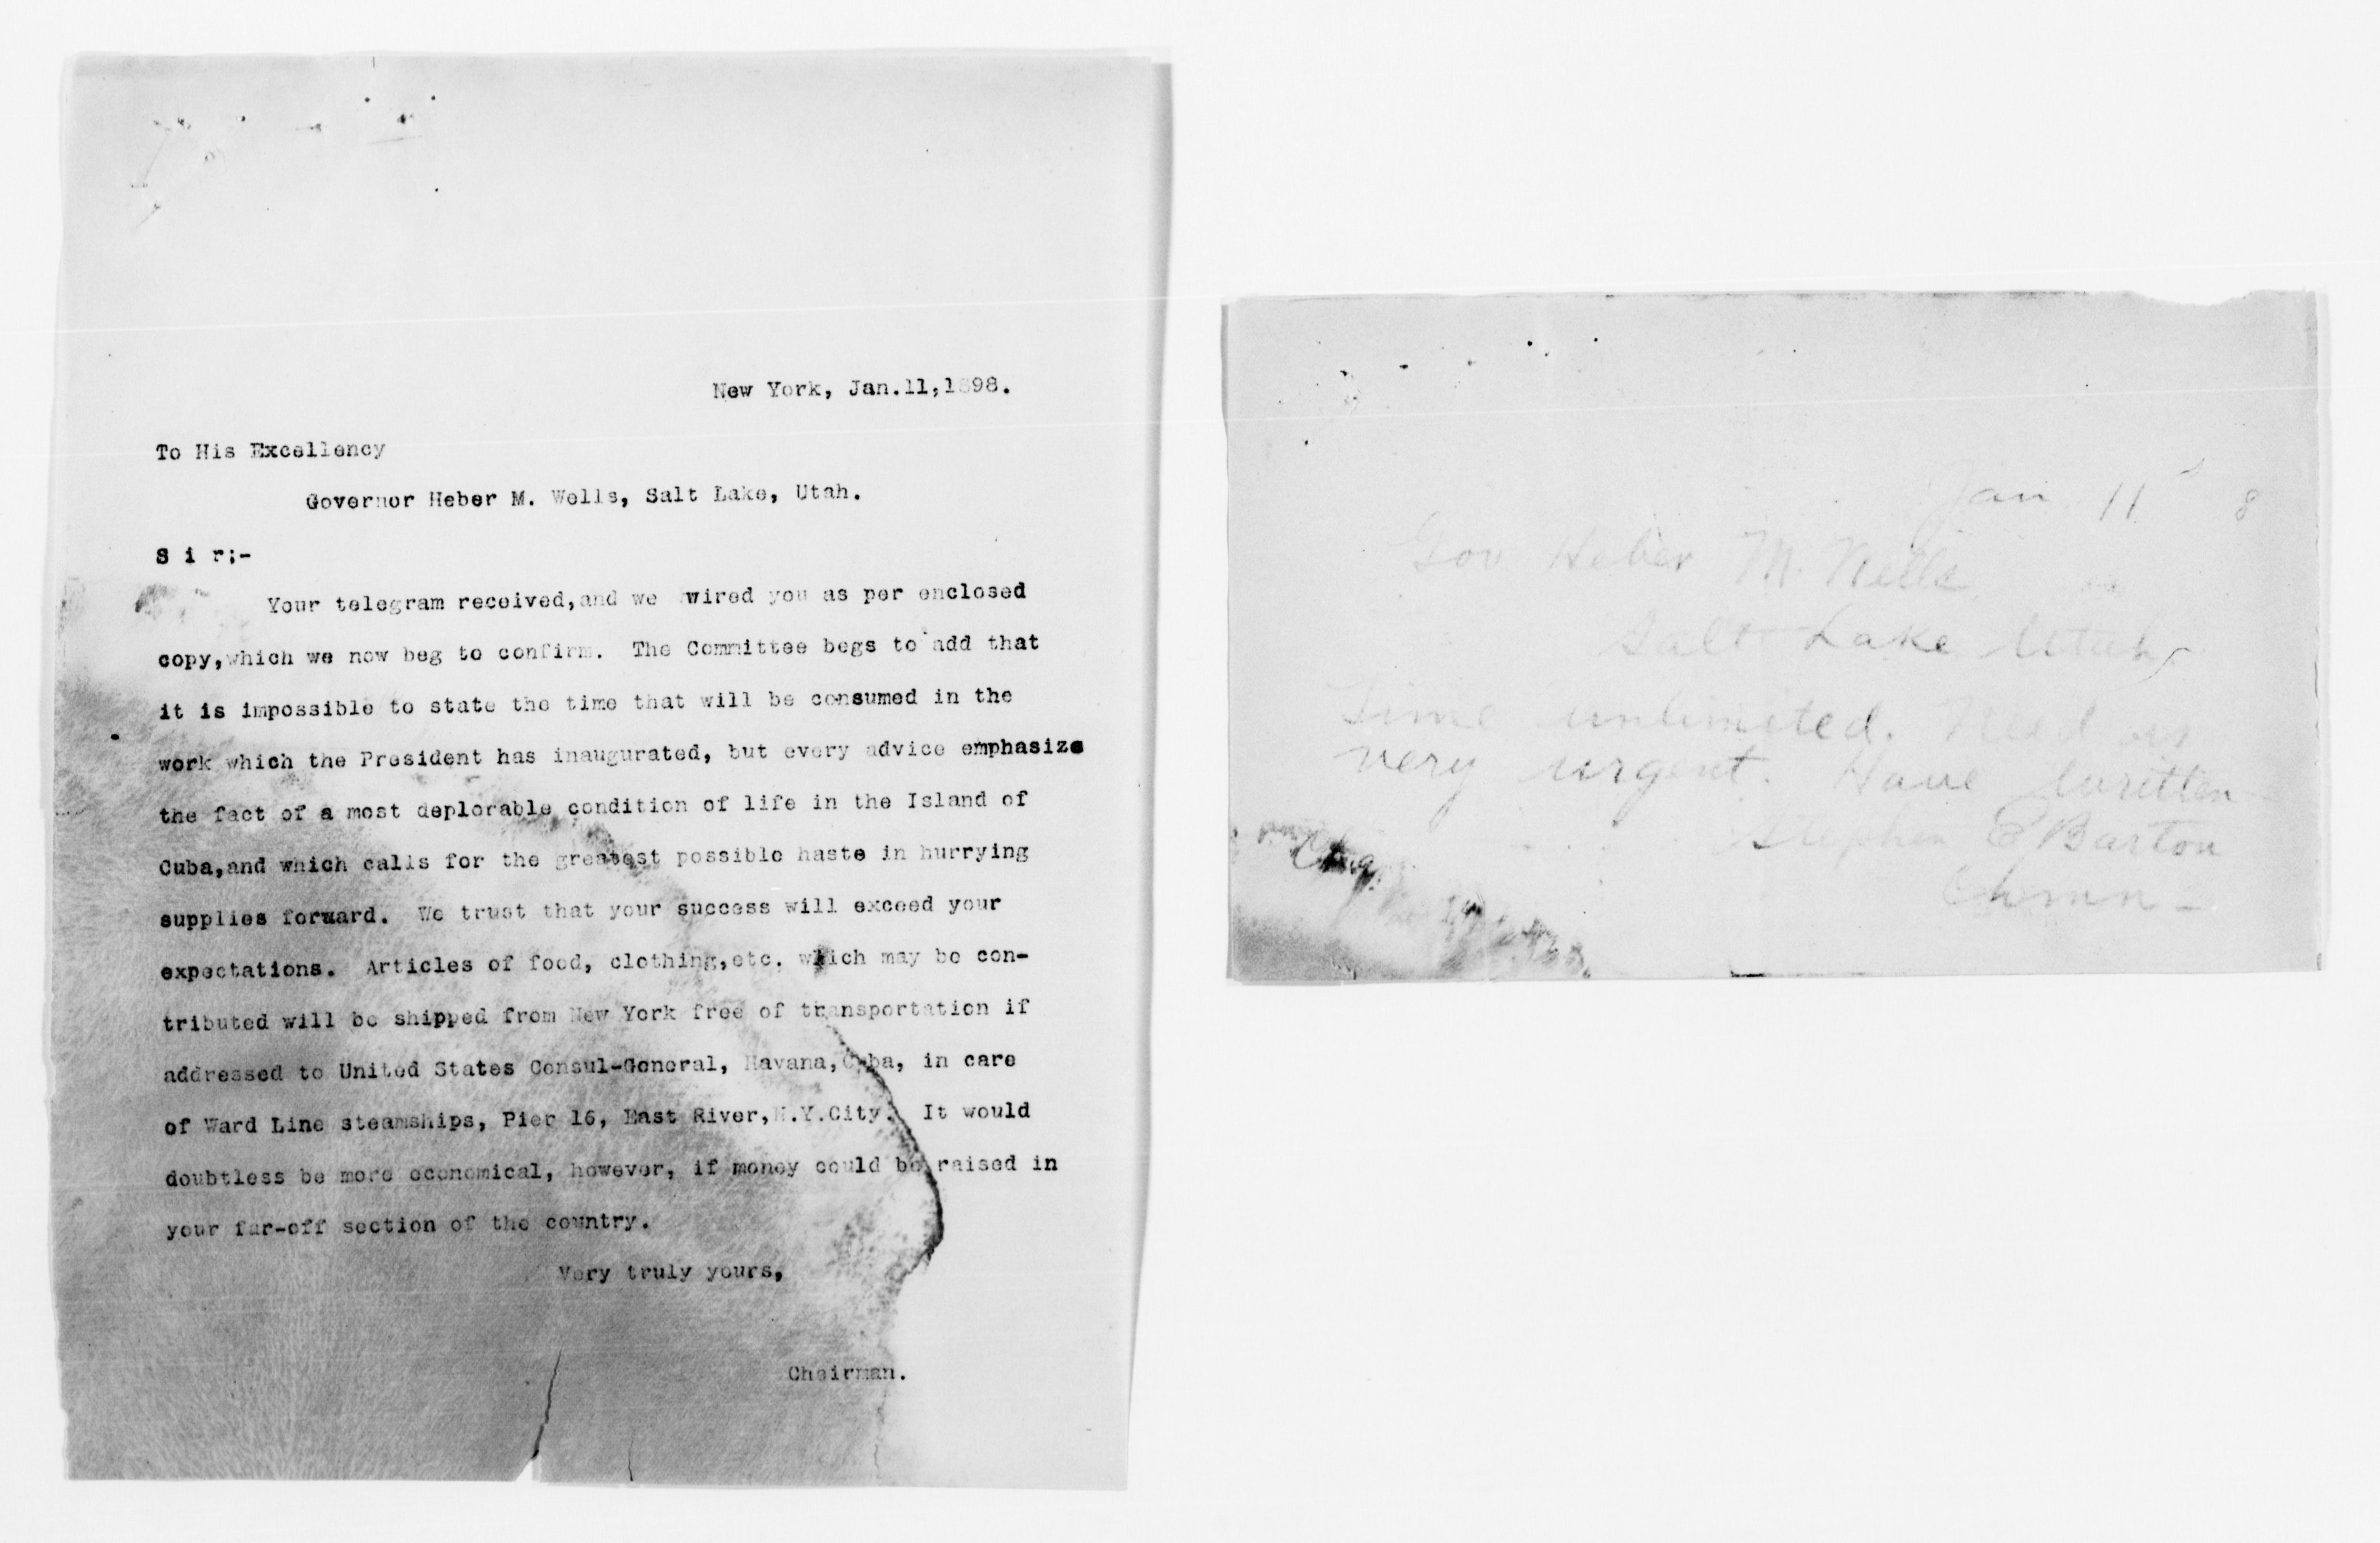 New York, Jan.11,1898.
To His Excellency
Governor Heber M. Wells, Salt Lake, Utah.
S i r;-
Your telegram received,and we wired you as per enclosed
copy,which we now beg to confirm. The Committee begs to add that
it is impossible to state the time that will be consumed in the
work which the President has inaugurated, but every advice emphasize
the fact of a most deplorable condition of life in the Island of
Cuba,and which calls for the greatest possible haste in hurrying
supplies forward. We trust that your success will exceed your
expectations. Articles of food, clothing,etc. which may be con-
tributed will be shipped from New York free of transportation if
addressed to United States Consul-General, Havana,Cuba, in care
of Ward Line steamships, Pier 16, East River,N.Y.City. It would
doubtless be more economical, however, if money could be raised in
your far-off section of the country.
Very truly yours,
Chairman.
Jan 11 8
Gov Heber M. Wells
Salt Lake Utah
Time unlimited. Need is
very urgent. Have written
Stephen E Barton
Chmn-